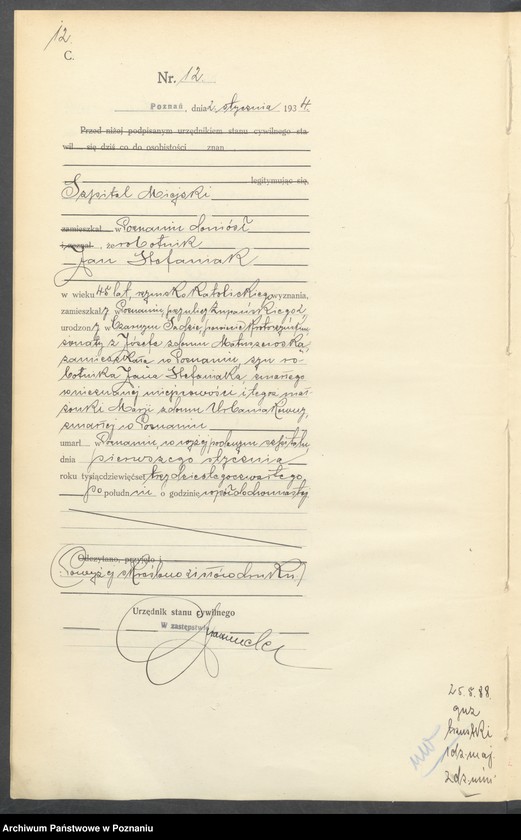 12.
C.
Nr. 12.
Poznań, dnia 2 stycznia 1934.
Przed niżej podpisanym urzędnikiem stanu cywilnego sta-
wił się dziś co do osobistości znan
legitymując się,
Szpital Miejski
zamieszkał w Poznaniu doniósł
i zeznał, że robotnik
Jan Stefaniak
w wieku 45 lat, rzymsko katolickiego wyznania,
zamieszkały w Poznaniu, przy ulicy
urodzony w Czarnym Sadzie, powiecie
żonaty z Józefą z domu
zamieszkałą w Poznaniu, syn ro-
botnika Jana Stefaniaka, zmarłego
w nieznanej miejscowości i tegoż mał-
żonki Marji z domu Urbaniakówny,
zmarłej w Poznaniu
umarł w Poznaniu, w wyżej podanym szpitalu
dnia pierwszego stycznia
roku tysiąc dziewięćset trzydziestego czwartego
po południu o godzinie wpół do dwunastej
Odczytano, przyjęto i
Powyżej skreślono słów druku
Urzędnik stanu cywilnego
W zastępstwie
25.8.88.
guz
1 dz. maj.
2 dz.
Archiwum Państwowe w Poznaniu